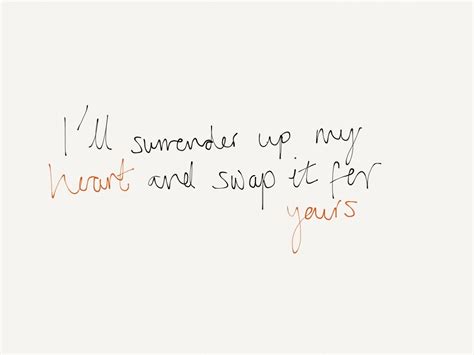 I'll surrender up my
heart and swap it for
yours